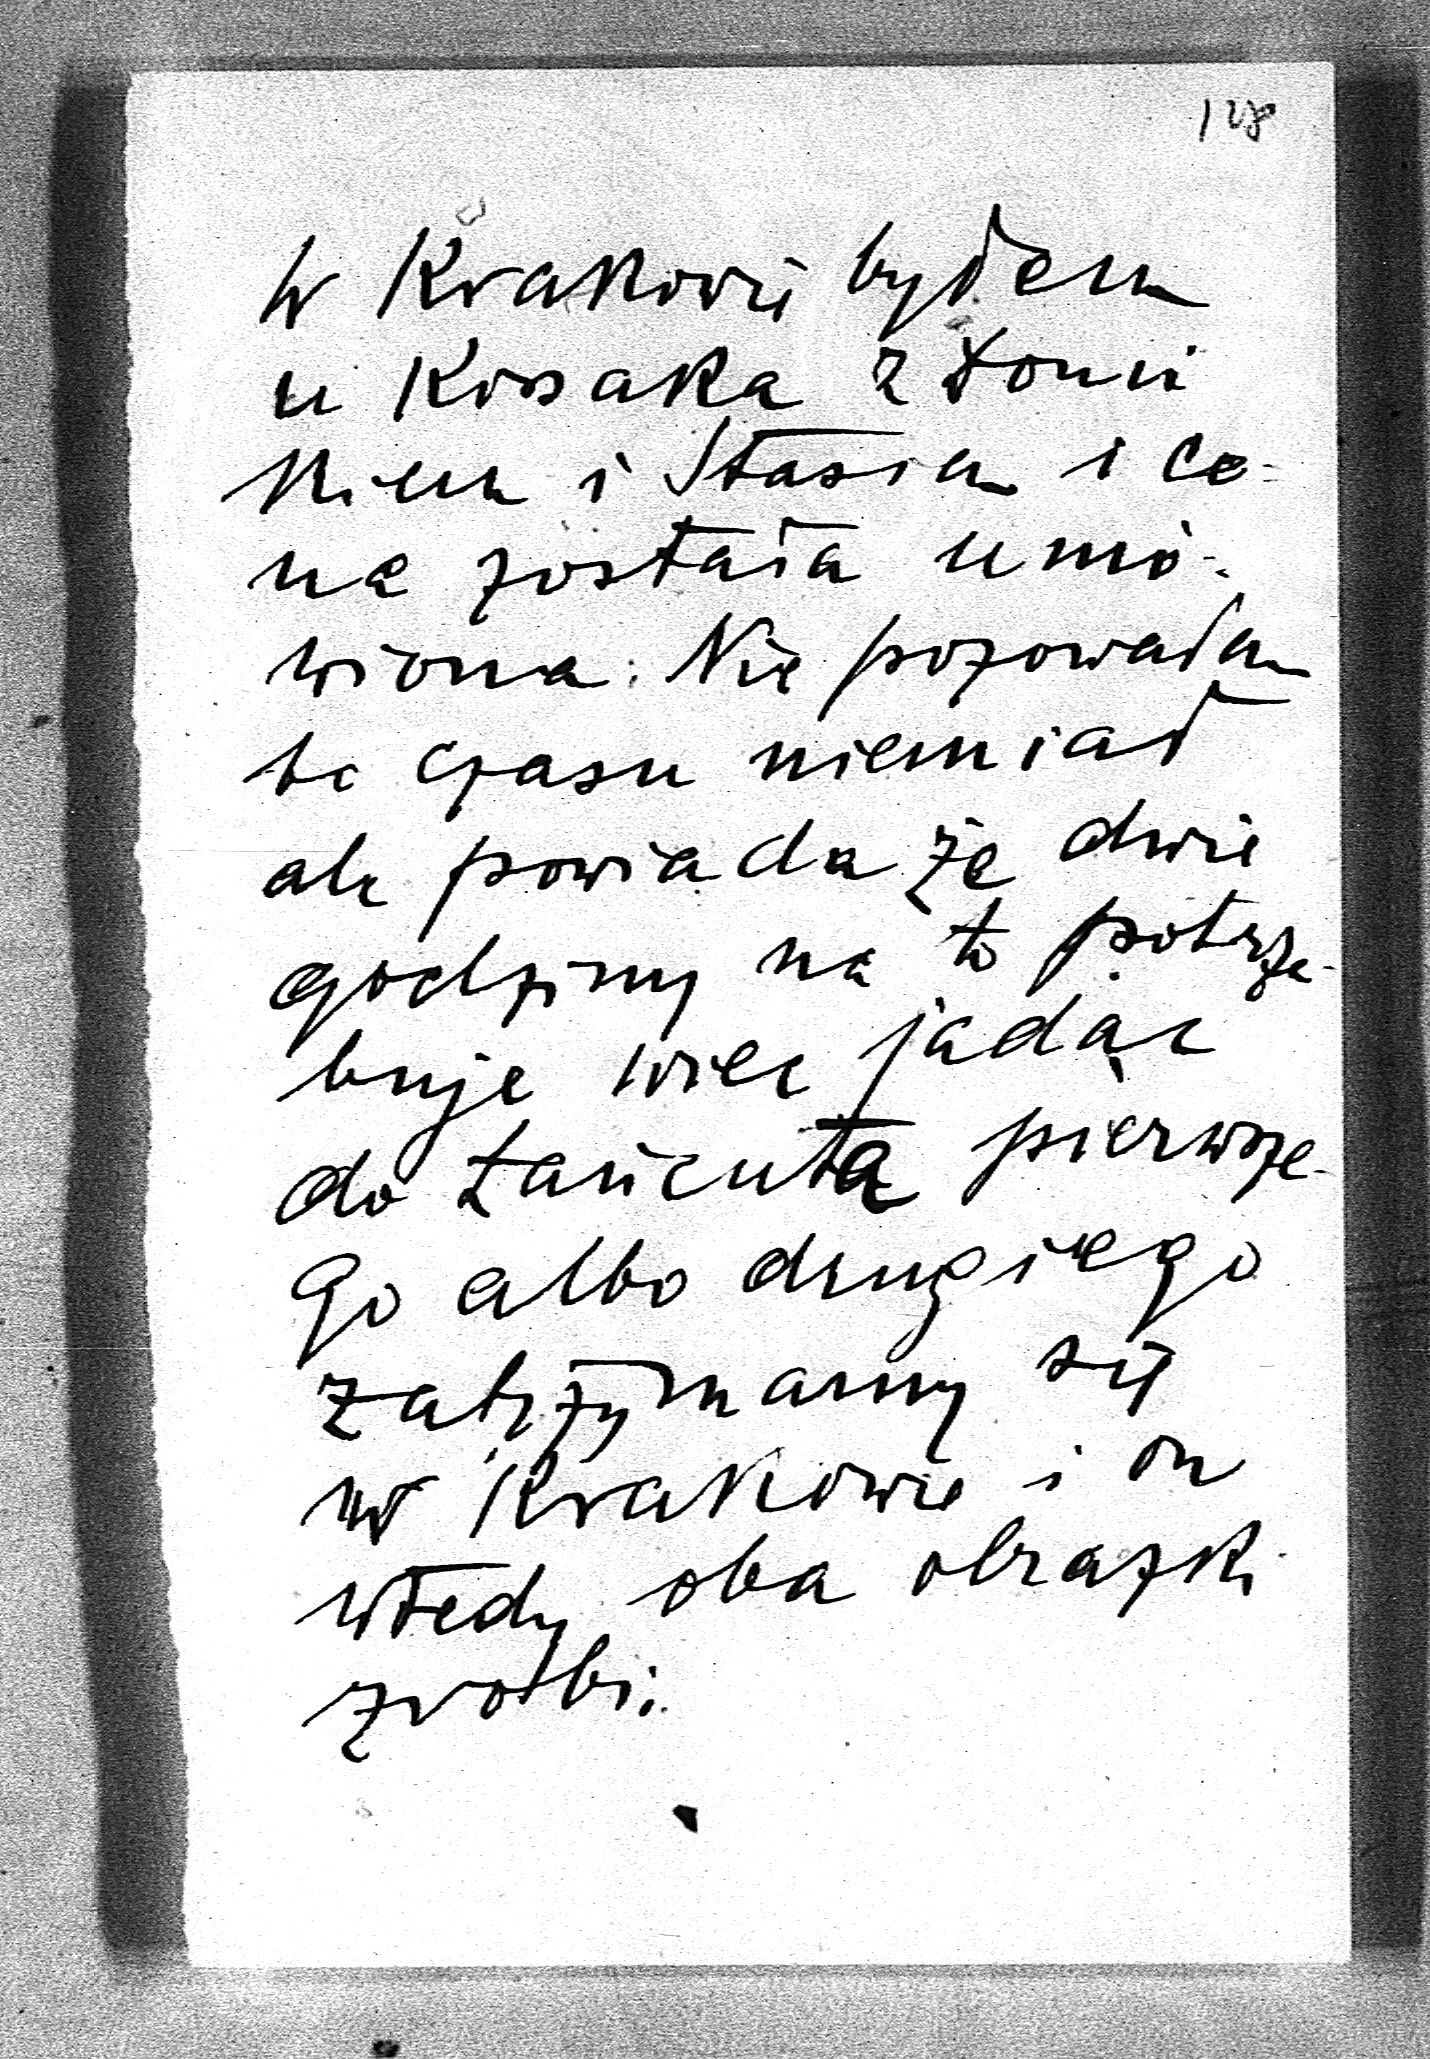 128
W Krakowie byłem
u Kossaka z Tomi
kiem i Stasiem i ce-
na została umó-
wiona. Nie pozowałam
bo czasu niemiał
ale powiada że dwie
godziny na to potrze-
buje więc jadąc
do Łańcuta pierwsze-
go albo drugiego
zatrzymamy się
w Krakowie i on
wtedy oba obrazki
zrobi.